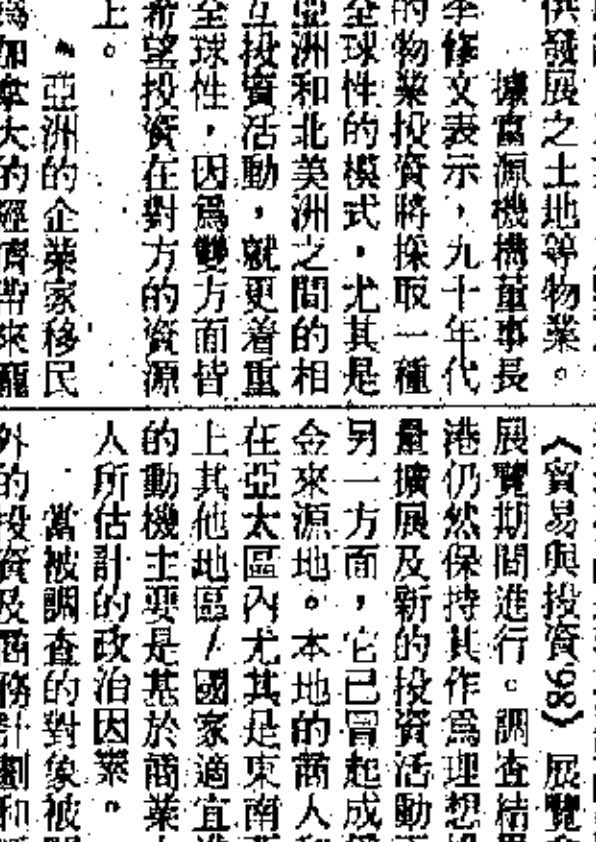 供發展之土地等物業。
據富源機構董事長
李修文表示，九十年代
的物業投資將採取一種
全球性的模式，尤其是
亞洲和北美洲之間的相
互投資活動，就更着重
全球性，因爲雙方面皆
希望投資在對方的資源
上。
亞洲的企業家移民
爲加拿大的經濟帶來龐
《貿易與投資86》展覽
展覽期間進行。調查結
港仍然保持其作爲理想
量擴展及新的投資活動
另一方面，它已冒起成
金來源地。本地的商人
在亞太區內尤其是東南
上其他地區／國家適宜
的動機主要是基於商業
人所估計的政治因素。
當被調查的對象被
外的投資及商務計劃和